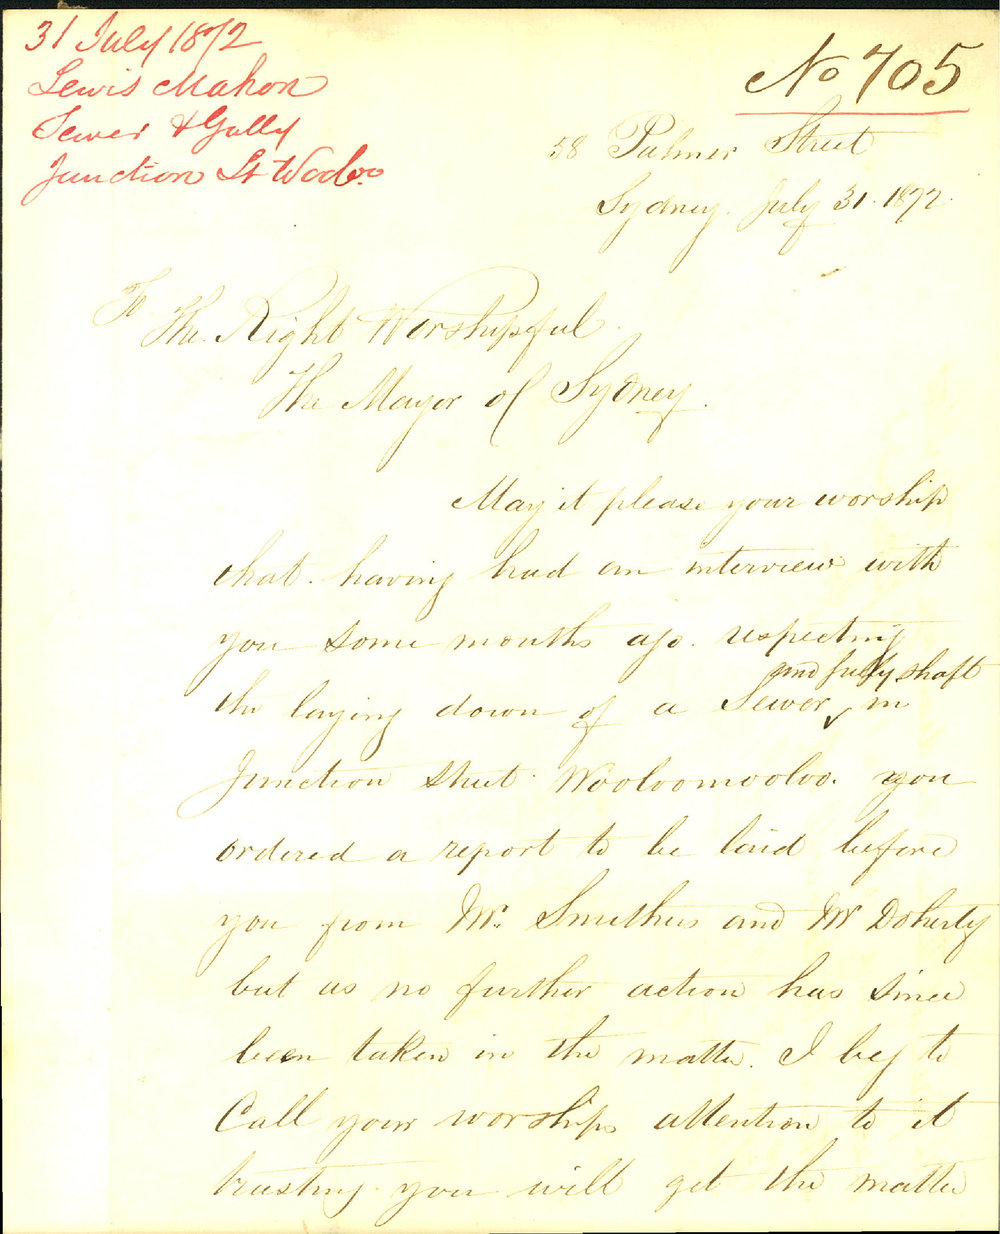 31 July 1872
Lewis Mahon
Sewer & Gully
Junction St Wooloo
No 705
58 Palmer Street
Sydney. July 31. 1872.
To
The Right Worshipful.
The Mayor of Sydney.
May it please your worship
that. having had an interview with
you some months ago. respecting
and gully shaft
the laying down of a Sewer in
Junction Street. Wooloomooloo. you
ordered a report to be laid before
you from Mr. Smithers and Mr Doherty
but as no further action has since
been taken in the matter. I beg to
Call your worships attention to it
trusting you will get the matter